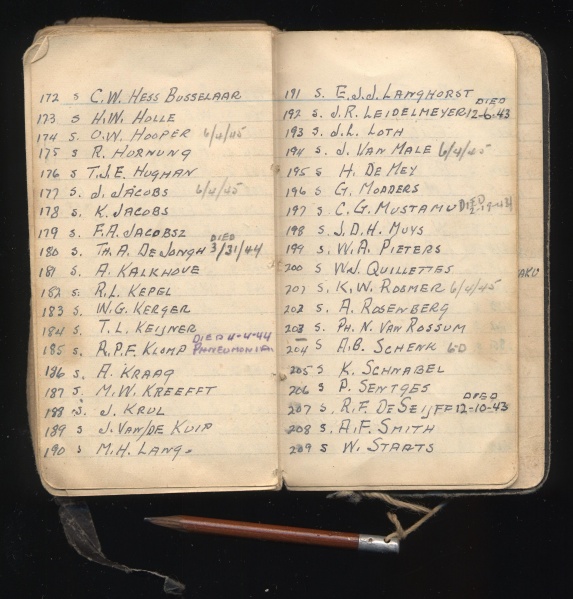 172 S C.W. HESS BUSSELAAR
173 S H.W. HOLLE
174 S. O.W. HOOPER 6/4/45
175 S R. HORNUNG
176 S T.J.E. HUGHAN
177 S. J. JACOBS 6/4/45
178 S. K. JACOBS
179 S. F.A. JACOBSZ
180 S. TH. A. DE JONGH DIED 3/31/44
181 S. A. KALKHOVE
182 S. R.L. KEPEL
183 S W.G. KERGER
184 S. T.L. KEIJNER
185 S. R.P.F. KLOMP DIED 4-4-44 PHNEUMONIA
186 S. A. KRAAG
187 S. M.W. KREEFFT
188 S. J. KRUL
189 S J. VAN/DE KUIP
190 S M.H. LANG.
191 S. E.J.J. LANGHORST
192 S. J.R. LEIDELMEYER DIED 12-6-43
193 S. J.L. LOTH
194 S. J. VAN MALE 6/4/45
195 S H. DE MEY
196 S G. MOADERS
197 S C.G. MUSTAMU DIED
198 S J.D.H. MUYS
199 S. W.A. PIETERS
200 S W.J. QUILLETTES
201 S. K.W. ROEMER 6/4/45
202 S. A. ROSENBERG
203 S PH. N. VAN ROSSUM
204 S A.B. SCHENK
205 S K. SCHNABEL
206 S P. SENTGES
207 S. R.F. DE SEIJFF DIED 12-10-43
208 S. A.F. SMITH
209 S W. STAATS
AKU